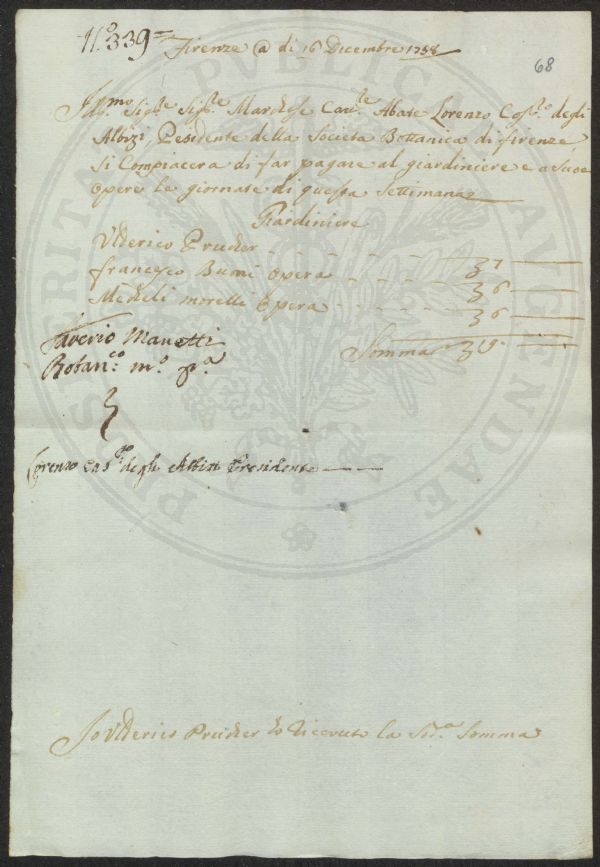 N.o 339=
Firenze @ di 16 Dicembre 1758
68
Ill.mo Sig.re Sig.re Marchese Cav.re Abate Lorenzo Cos.o degli
Albizi, Pesidente della Societa Bottanica di firenze,
Si Compiacera di far pagare al giardiniere e a Suoe
opere le giornate di questa Settimana
Giardiniere
Ulderico Prucker - - - - 7
francesco Buoni Opera - - - - 6
Medeli morelli Opera - - - - 6
Somma 19
Saverio Manetti
Botan.co m.o p.a
Lorenzo Cas.o degli Albizi Presidente
Io Ulderico Prucker ho Riceuto la Sud.a Somma
PROSPERITATI PUBLICAE AUGENDAE